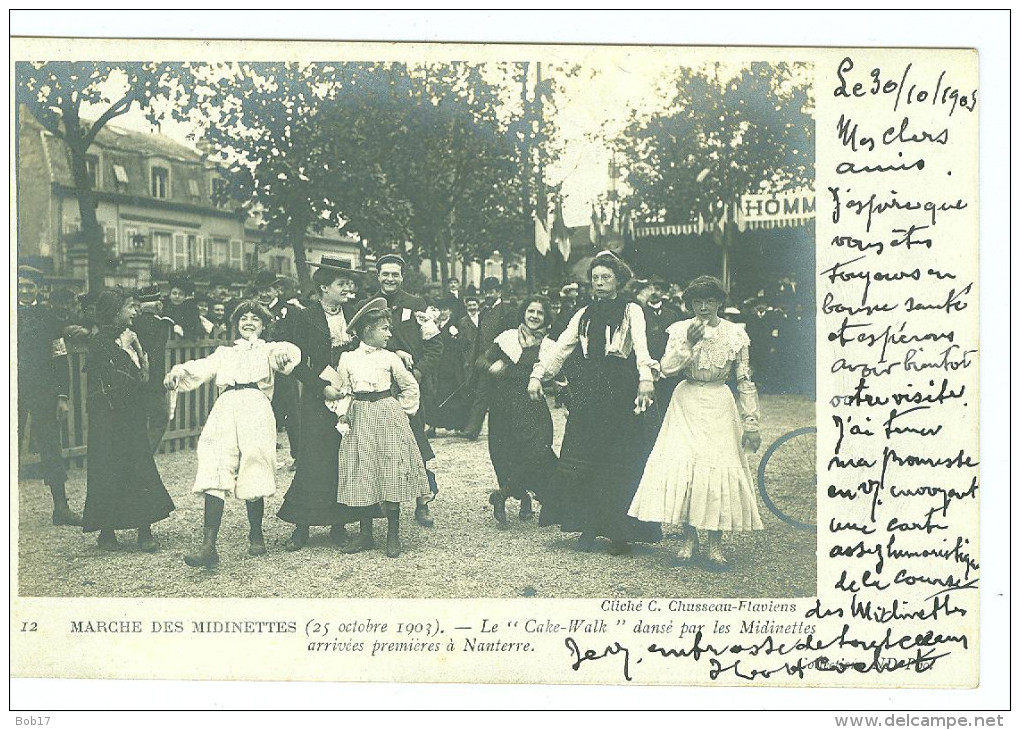 HOMM
Le 30/10/1903
Mes chers
amis.
J'espère que
vous êtes
toujours en
bonne santé
et espérons
avoir bientôt
votre visite.
J'ai tenu
ma promesse
en v. envoyant
une carte
assez humoristique
de la course
des Midinettes
Je v. embrasse de tout cœur
Cliché C. Chusseau-Flaviens
12 MARCHE DES MIDINETTES (25 octobre 1903). — Le "Cake-Walk" dansé par les Midinettes
arrivées premières à Nanterre.
Collections ND Phot
Bob17
www.delcampe.net